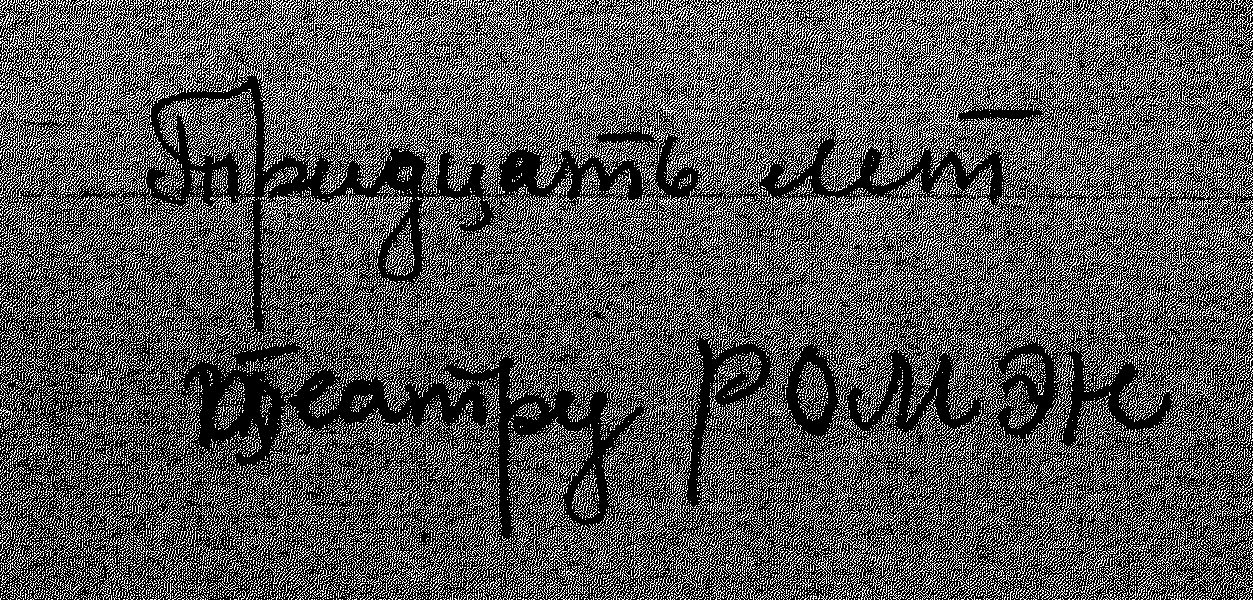 Тридцать лет
театру Ромэн